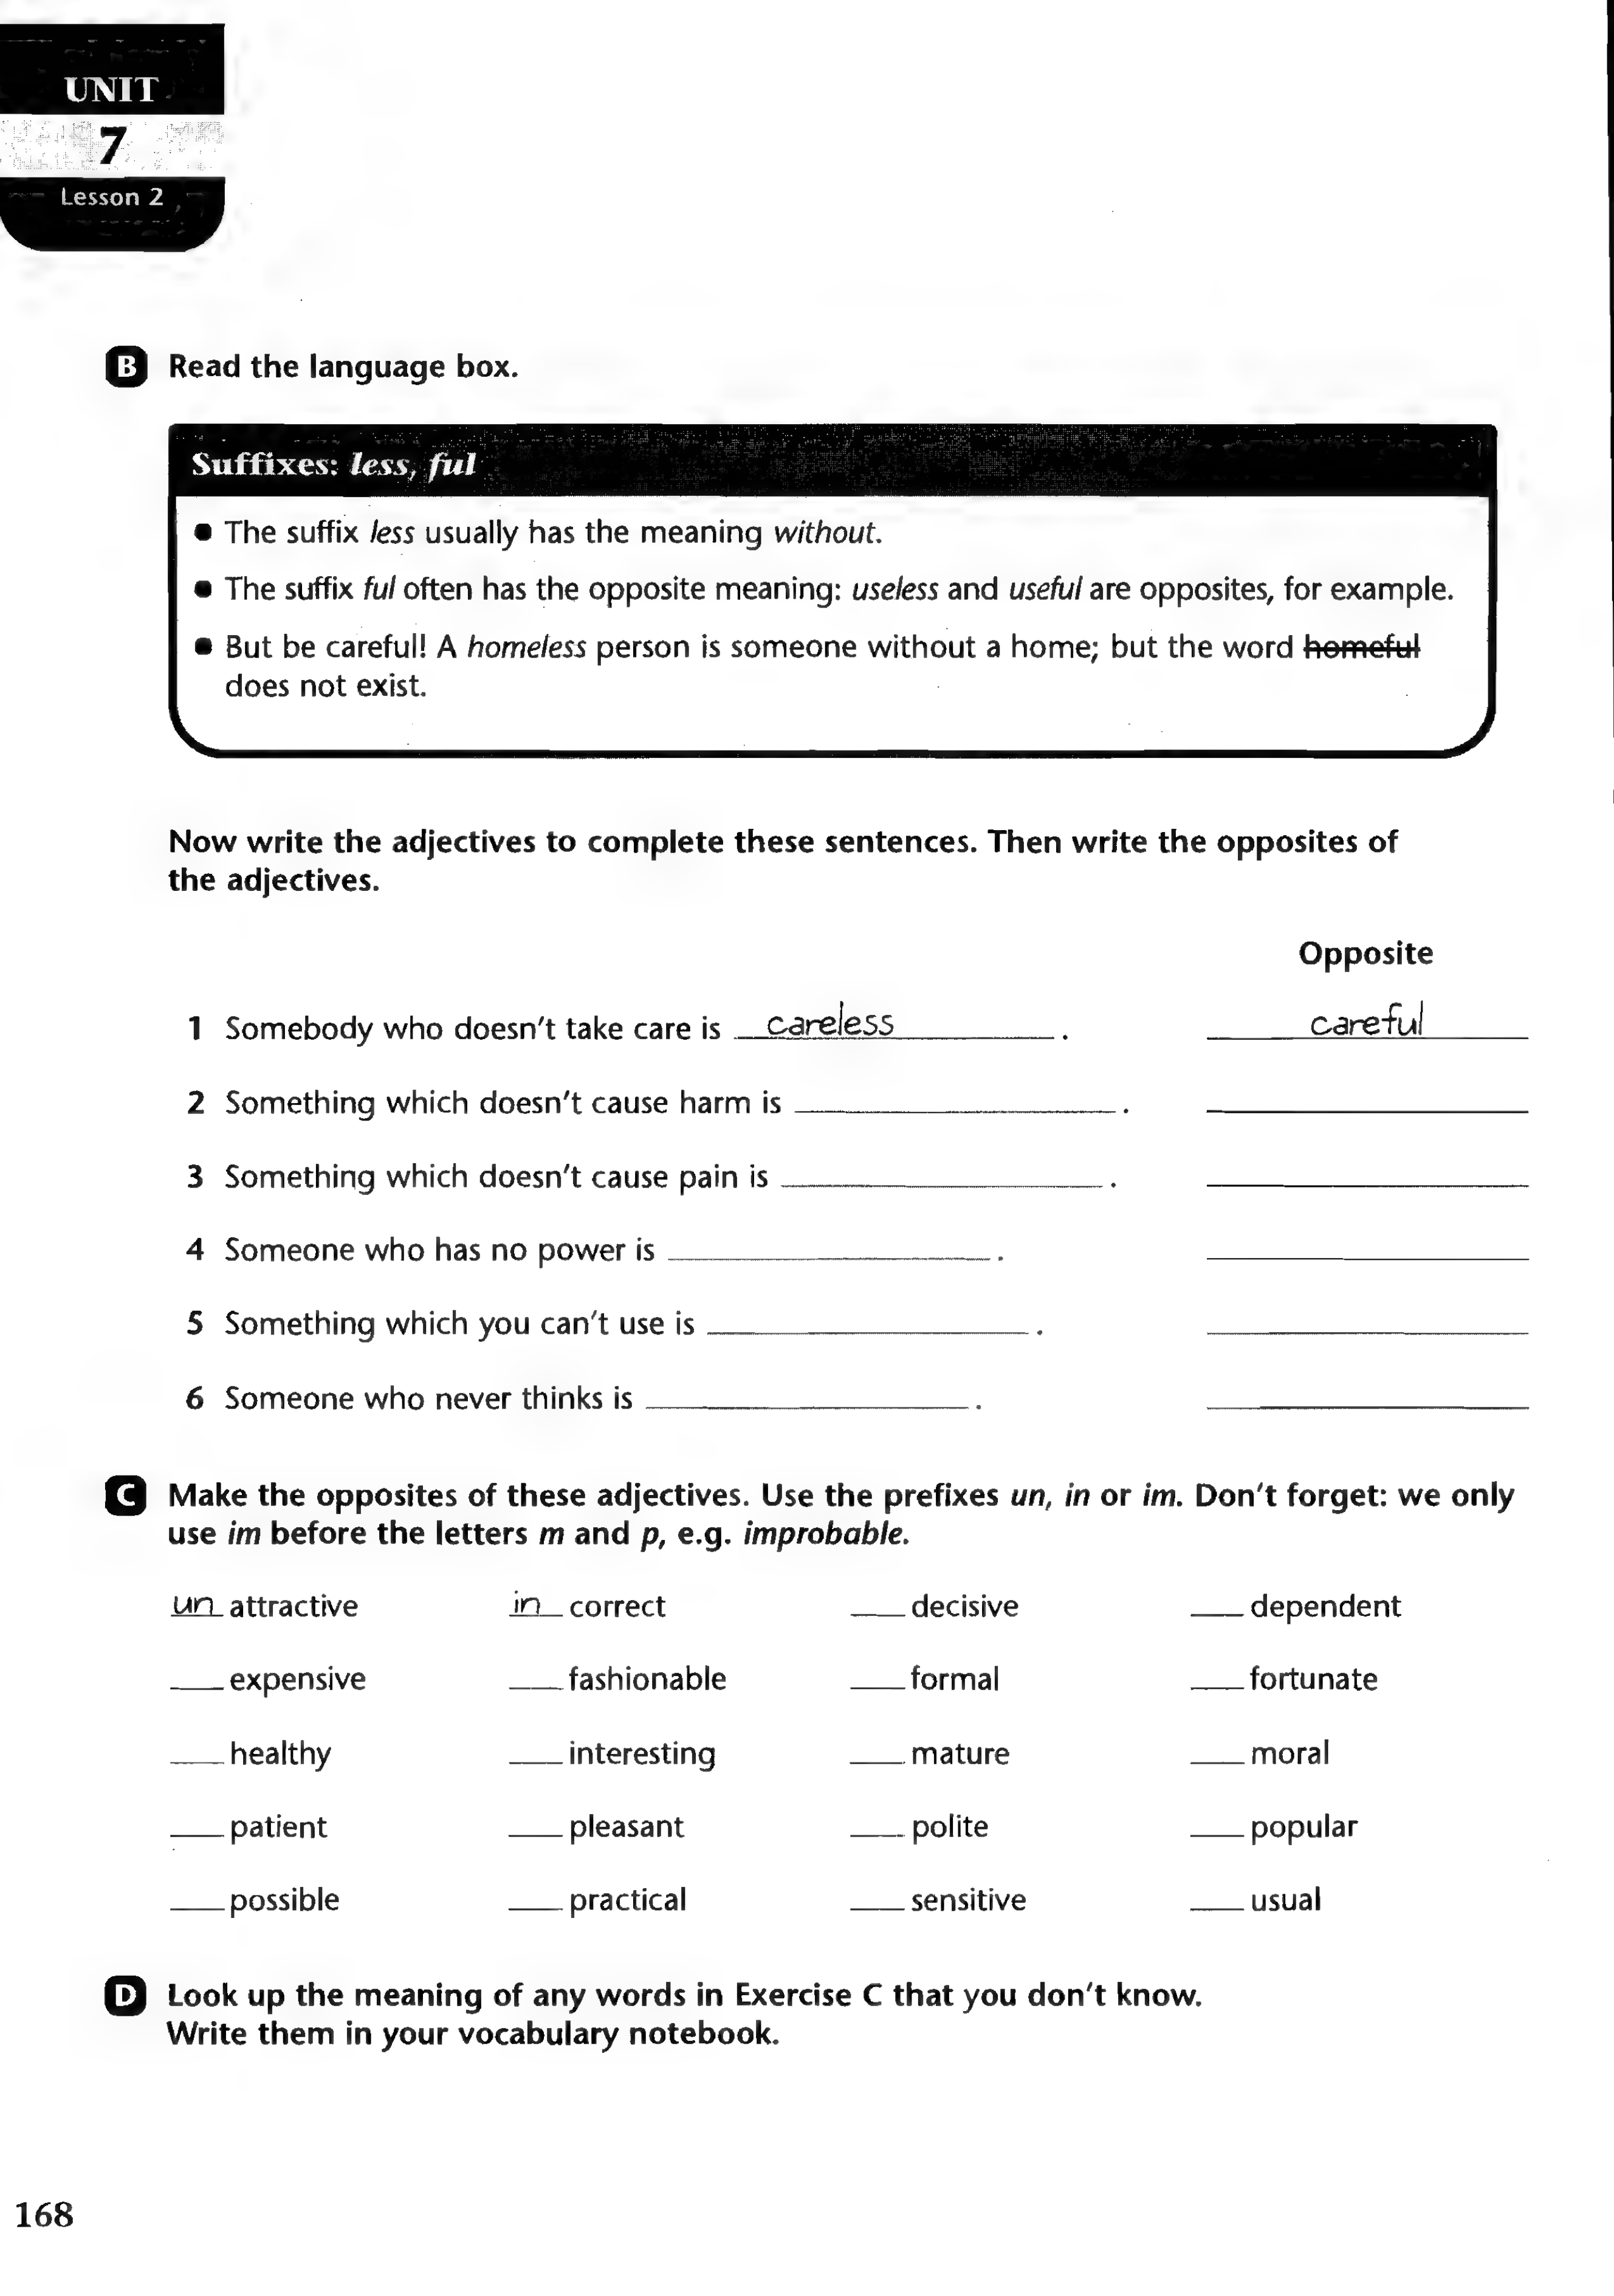 UNIT
7
Lesson 2
B Read the language box.
Suffixes: less, ful
● The suffix less usually has the meaning without.
● The suffix ful often has the opposite meaning: useless and useful are opposites, for example.
● But be careful! A homeless person is someone without a home; but the word homeful
does not exist.
Now write the adjectives to complete these sentences. Then write the opposites of
the adjectives.
Opposite
1 Somebody who doesn't take care is careless . careful
2 Something which doesn't cause harm is ______ . ______
3 Something which doesn't cause pain is ______ . ______
4 Someone who has no power is ______ . ______
5 Something which you can't use is ______ . ______
6 Someone who never thinks is ______ . ______
C Make the opposites of these adjectives. Use the prefixes un, in or im. Don't forget: we only
use im before the letters m and p, e.g. improbable.
un attractive in correct ___ decisive ___ dependent
___ expensive ___ fashionable ___ formal ___ fortunate
___ healthy ___ interesting ___ mature ___ moral
___ patient ___ pleasant ___ polite ___ popular
___ possible ___ practical ___ sensitive ___ usual
D Look up the meaning of any words in Exercise C that you don't know.
Write them in your vocabulary notebook.
168